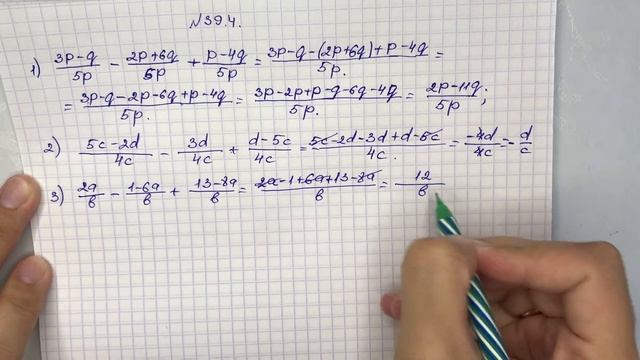 №39.4.
1) (3p-q)/5p - (2p+6q)/5p + (p-4q)/5p = (3p-q-(2p+6q)+p-4q)/5p. =
= (3p-q-2p-6q+p-4q)/5p. = (3p-2p+p-q-6q-4q)/5p. = (2p-11q)/5p;
2) (5c-2d)/4c - 3d/4c + (d-5c)/4c = (5c-2d-3d+d-5c)/4c. = -4d/4c = -d/c
3) 2a/b - (1-6a)/b + (13-8a)/b = (2a-1+6a+13-8a)/b = 12/b